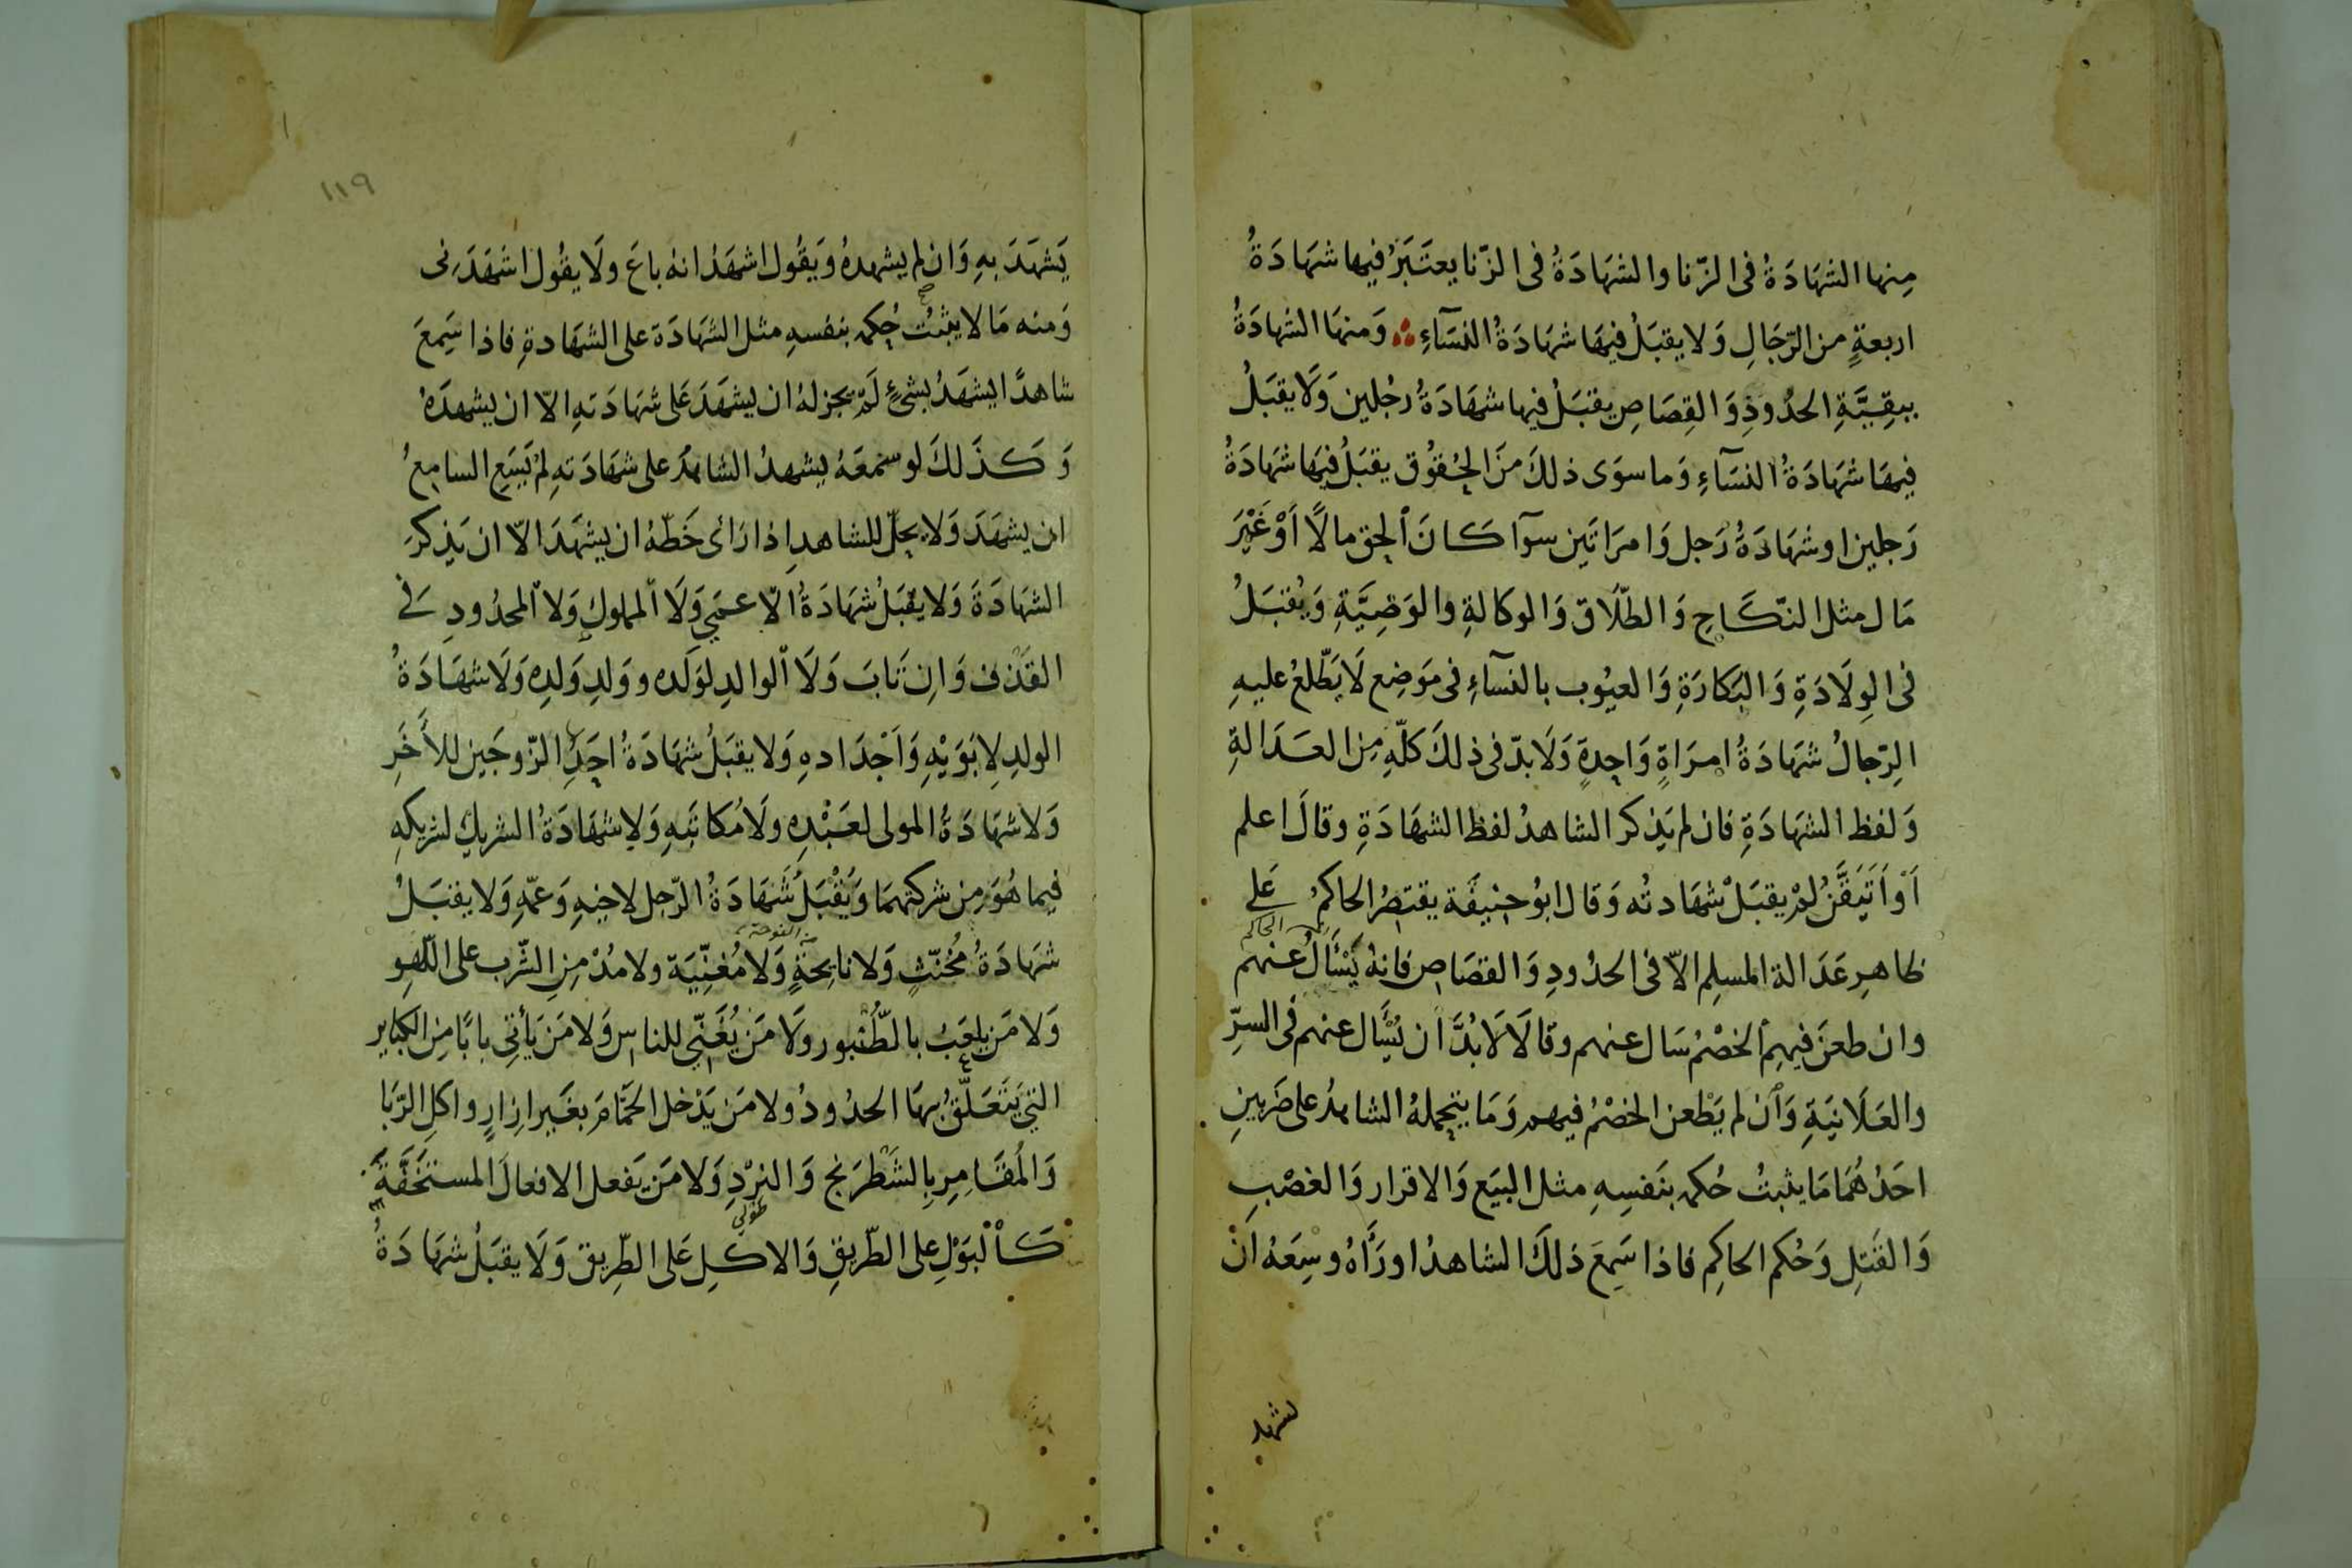 مِنها الشهَادَةُ فى الزّنا والشهَادَةُ فى الزّنا يعتَبَرُ فيها شهَادَةُ
اربعةٍ من الرّجَالِ وَلا يقبَلُ فيهَا شهَادَةُ النسَآءِ وَمنهَا الشهادَةُ
ببقِيَّةِ الحدُودِ وَالقِصَاصِ يقبَلُ فيها شهَادَةُ رجُلين وَلَا يقبَلُ
فيهَا شهَادَةُ النسَآءِ وَما سوَى ذلكَ مِنَ الحُقوُق يقبَلُ فيهَا شهَادَةُ
رَجلين اوشهَادَةُ رَجل وَامرَاتَين سوآ كانَ الحق مالًا اَوْ غَيْرَ
مَال مثل النّكَاحِ وَالطّلَاق وَالوكالةِ والوَصِيَّةِ وَيُقبَلُ
فى الوِلَادَةِ وَالبَكارَةِ وَالعيُوب بالنسآءِ فى مَوَضِع لَا يَطّلعُ عليهِ
الرّجالُ شهَادَةُ امرَاةٍ وَاحِدةٍ وَلَا بدّ فى ذلكَ كلّهِ مِن العدَالةِ
وَلفظ الشهَادَةِ فان لم يَذكر الشاهدُ لفظ الشهَادَةِ وقالَ اعلم
اَوْ اَتَيَقَّنُ لَمْ يقبَلْ شهَادتُه وَقال ابوُحنيفَة يقتصِرُ الحاكمُ عَلى
الحاكم
ظاهِرِ عَدَالة المسلِم الاّ فى الحدُودِ وَالقصَاص فانهُ يَسْأَلُ عنهم
وان طعنَ فيهِم الخصْمُ سَال عنهم وقالَا لَا بُدَّ ان يُسْأَل عنهم فى السرّ
والعَلَانِيَةِ وَان لم يَطْعن الخصْمُ فيهم وَمَا يتحملهُ الشاهدُ على ضَربينِ
احَدُهُمَا مَا يثبتُ حُكمه بنَفسِهِ مثل البيَع وَالاقرار وَالغصْبِ
وَالقَتلِ وَحُكم الحاكِم فاذا سَمِعَ ذلكَ الشاهدُ اورَاهُ وسِعَهُ اَنْ
يشهد
١١٩
يَشهَدَ بهِ وَان لم يشهدهُ وَيَقُول اشهَدُ انهُ باعَ ولَا يقُول اشهَدَنى
وَمنه مَا لا يثبُت حُكمه بنفسهِ مثل الشهَادَة على الشهَادةِ فاذا سَمِعَ
شاهدًا يشهَدُ بشئٍ لَمْ يجز لهُ ان يشهَدَ عَلى شهَادَتهِ الاّ ان يشهدَهُ
وَكذَلكَ لو سَمعَهُ يشهدُ الشاهدَ على شهَادَتهِ لم يَسَعِ السامِعُ
ان يشهَدَ وَلا يحِلّ للشاهدِ اذا رَائى خَطّهُ ان يشهَدَ الاّ ان يَذكرَ
الشهَادَةَ وَلا يقبَلُ شهَادَةُ الاعمَى وَلَا المملوكِ وَلا المحدُودِ فى
القَذف وَاِن تَابَ وَلَا الوالدِ لوَلَده ووَلدِ وَلدِه وَلَا شهَادَةُ
الولدِ لِابَوَيْهِ وَاَجْدَادهِ وَلا يقبَلُ شهَادَةُ اَحَدِ الزّوجَين للاَخَرِ
وَلا شهَادَةُ المولى لعَبْدِه ولَا مُكاتَبِهِ وَلا شهَادَةُ الشريكِ لشريكهِ
فيما هُوَ مِن شركتهمَا وَيُقْبَلُ شهَادَةُ الرّجل لاخيهِ وَعمّهِ وَلا يقبَلُ
شهَادَةُ مُخنّثٍ وَلا نايحَةٍ وَلَا مُغنِّيَة ولا مُدْمِنِ الشّرب على اللّهوِ
وَلا مَن يلعَبُ بالطُّنْبور ولَا مَنْ يُغَنّي للناس وَلا مَن يَأتى بابًا مِن الكبَاير
التى يَتَعَلَّقُ بهَا الحدُودُ ولا مَن يَدْخل الحمَّامَ بغَير اِزارٍ واكلِ الرّبَا
وَالمُقَامِرِ بِالشَطْرَنج وَالنرْدِ وَلا مَن يَفعل الافعالَ المستَخَفَّةَ
كالْبَوْلِ على الطّريقِ وَالاكلِ عَلى الطّريق وَلَا يقبَلُ شهَادَةُ